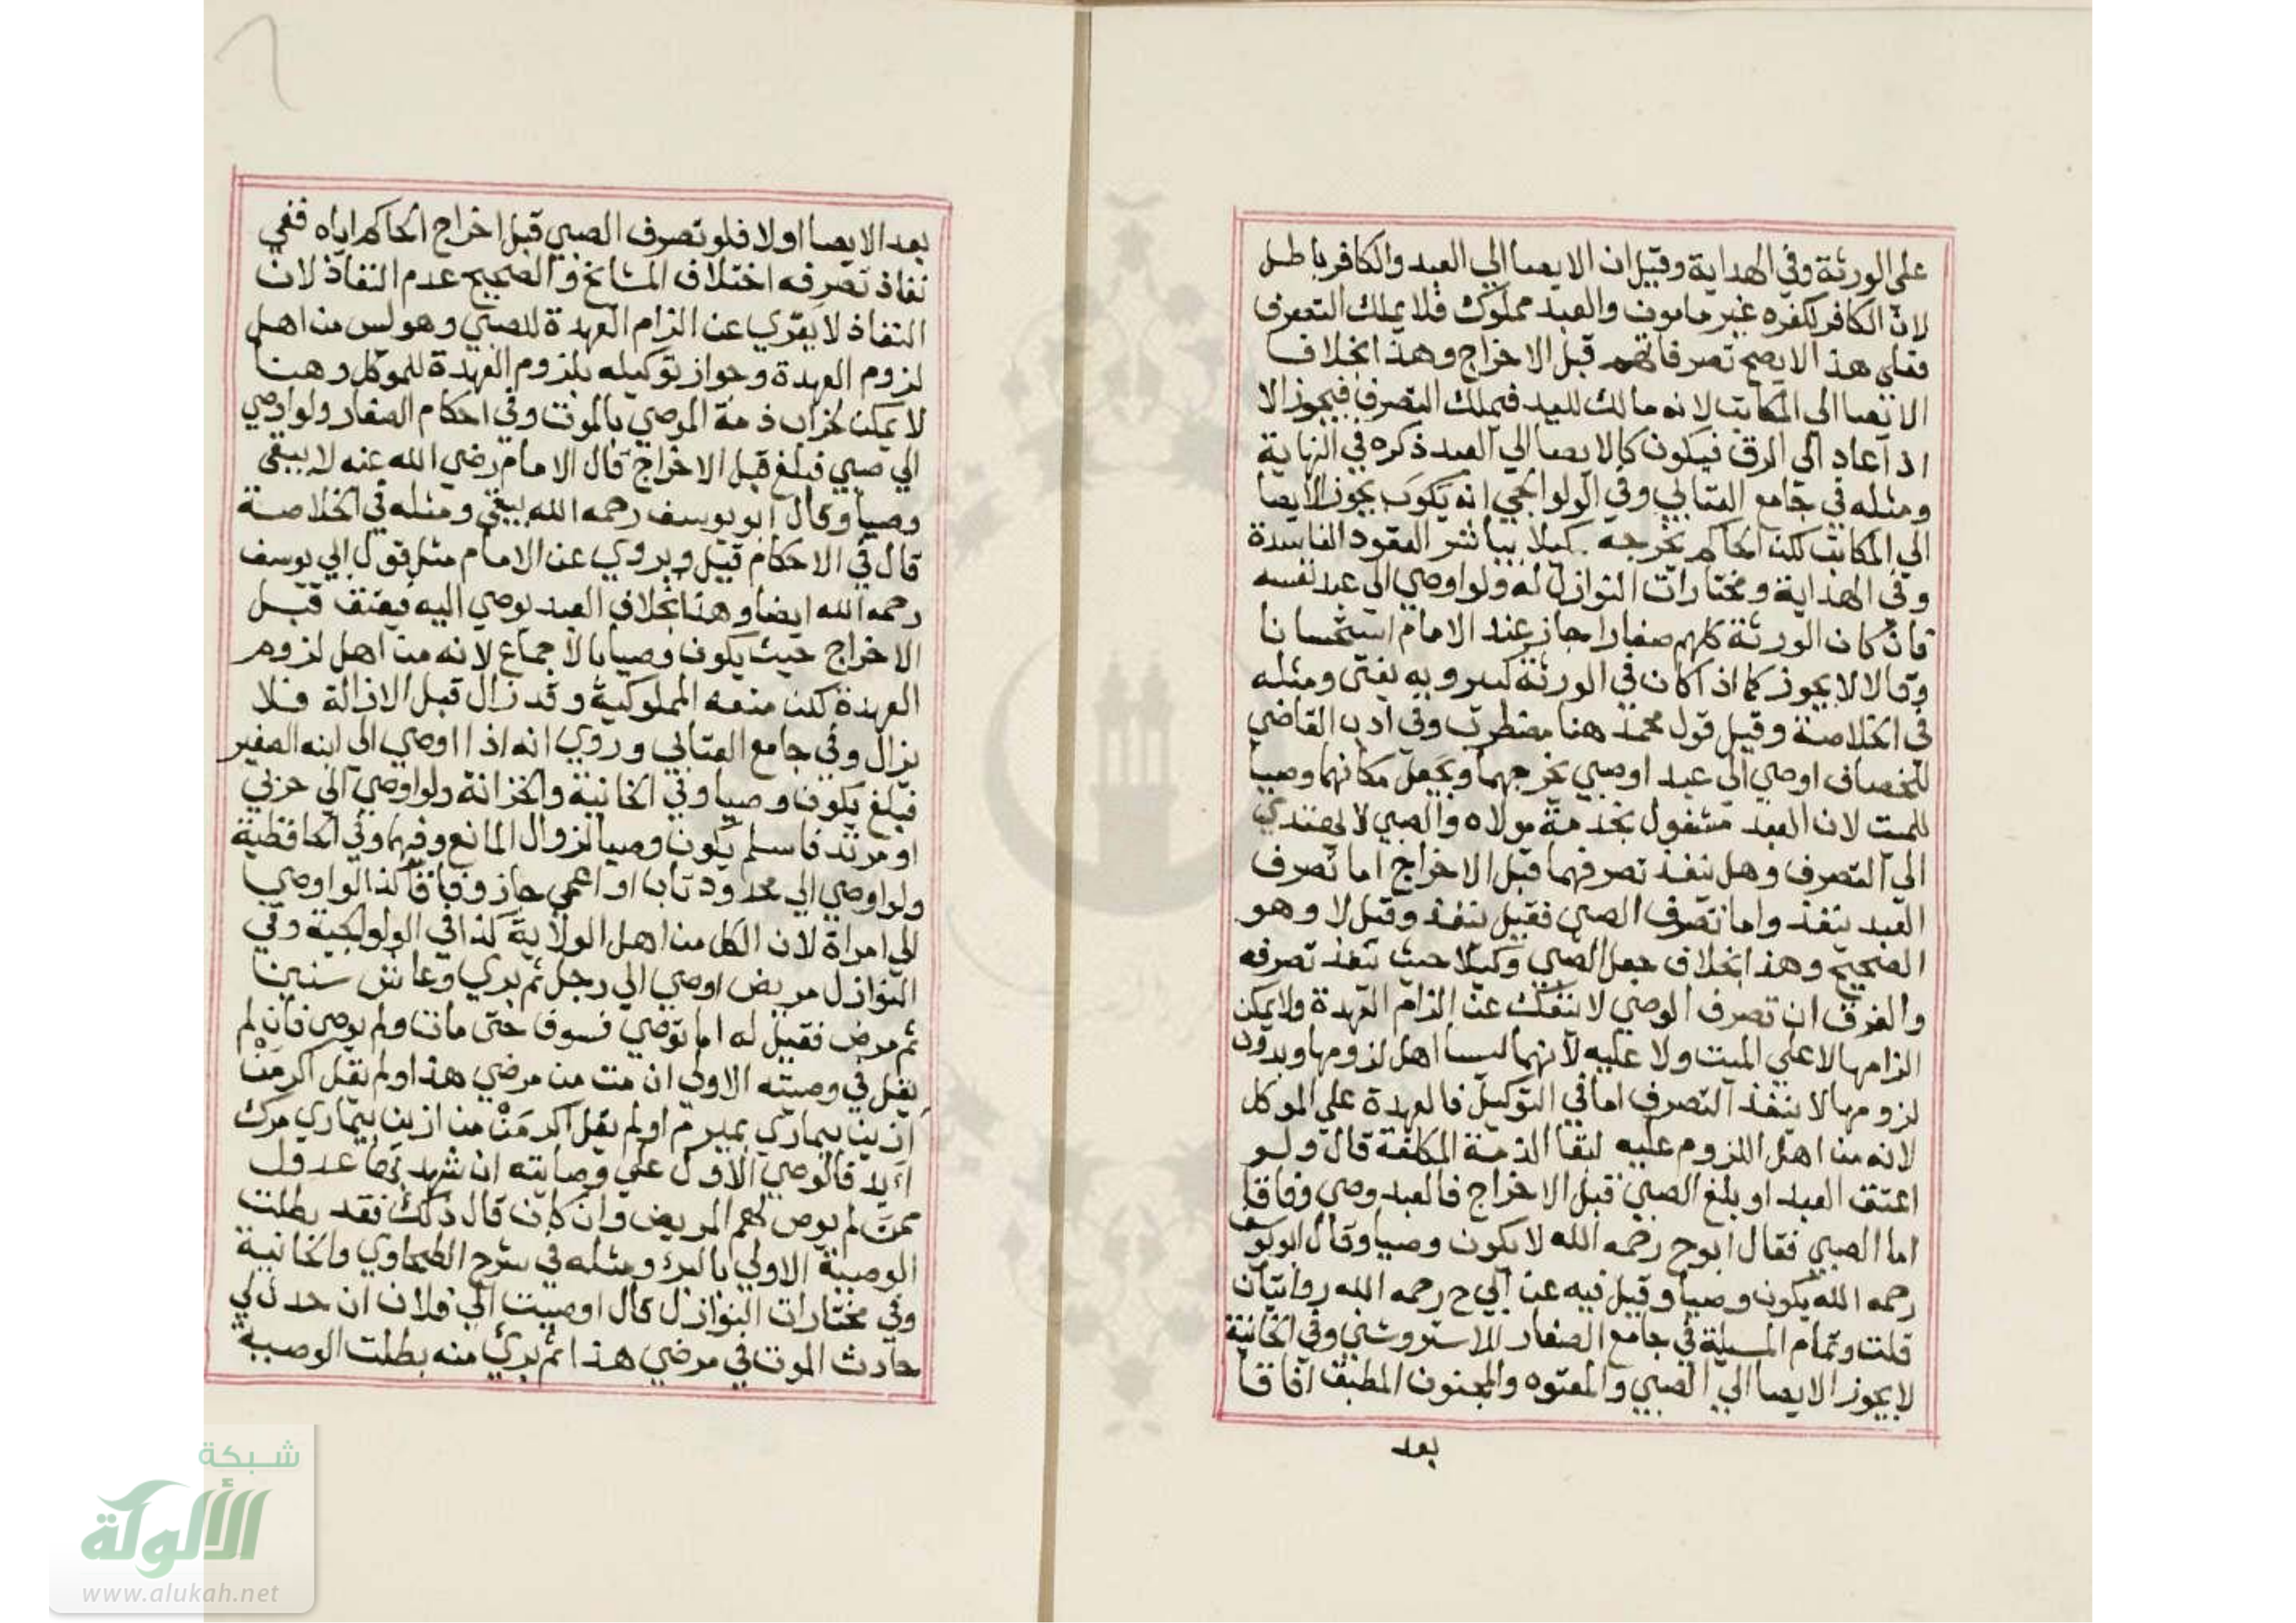 على الورثة وفي الهداية وقيل ان الايصا الي العبد والكافر باطل
لان الكافر لكفره غير مامون والعبد مملوك فلا يملك التصرف
فعلي هذا لا يصح تصرفاتهم قبل الاخراج وهذا بخلاف
الايصا الي المكاتب لانه مالك لليد فيملك التصرف فيجوز الا
اذا عاد الي الرق فيكون كالايصا الي العبد ذكره في النهاية
ومثله في جامع العتابي وفي الولوالجي انه يكون يجوز الايصا
الي المكاتب لكن الحاكم يخرجه كيلا يباشر العقود الفاسدة
وفي الهداية ومختارات النوازل له ولو اوصي الي عبد نفسه
فان كان الورثة كلهم صغارا جاز عند الامام استحسانا
وقالا لا يجوز كما اذا كان في الورثة كبير وبه يفتى ومثله
في الخلاصة وقيل قول محمد هنا مضطرب وفي ادب القاضي
للخصاف اوصي الي عبد او صبي يخرجهما ويجعل مكانهما وصيا
للميت لان العبد مشغول بخدمة مولاه والصبي لا يهتدي
الي التصرف وهل ينفذ تصرفهما قبل الاخراج اما تصرف
العبد ينفذ واما تصرف الصبي فقيل ينفذ وقيل لا وهو
الصحيح وهذا بخلاف جعل الصبي وكيلا حيث ينفذ تصرفه
والفرق ان تصرف الوصي لا ينفك عن الزام العهدة ولا يمكن
الزامها لا علي الميت ولا عليه لانهما ليسا اهل لزومها وبدون
لزومها لا ينفذ التصرف اما في التوكيل فالعهدة علي الموكل
لانه من اهل اللزوم عليه لبقا الذمة المكلفة قال ولو
اعتق العبد او بلغ الصبي قبل الاخراج فالعبد وصي وفاقا
اما الصبي فقال ابوح رحمه الله لا يكون وصيا وقال ابو يوسف
رحمه الله يكون وصيا وقيل فيه عن ابي ح رحمه الله روايتان
قلت وتمام المسيلة في جامع الصغار للاستروشني وفي الخانية
لا يجوز الايصا الي الصبي والمعتوه والمجنون المطبق افاقا
بعد
بعد الايصا او لا فلو تصرف الصبي قبل اخراج الحاكم اياه ففي
نفاذ تصرفه اختلاف المشايخ والصحيح عدم النفاذ لان
النفاذ لا يعري عن الزام العهدة للصبي وهو ليس من اهل
لزوم العهدة وجواز توكيله بلزوم العهدة للموكل وهنا
لا يمكن لخراب ذمة الموصي بالموت وفي احكام الصغار ولو اوصي
الي صبي فبلغ قبل الاخراج قال الامام رضي الله عنه لا يبقي
وصيا وقال ابو يوسف رحمه الله يبقي ومثله في الخلاصة
قال في الاحكام قيل ويروي عن الامام مثل قول ابي يوسف
رحمه الله ايضا وهذا بخلاف العبد يوصي اليه فيعتق قبل
الاخراج حيث يكون وصيا بالاجماع لانه من اهل لزوم
العهدة لكن منعه المملوكية وقد زال قبل الازالة فلا
يزال وفي جامع العتابي وروي انه اذا اوصي الي ابنه الصغير
فبلغ يكون وصيا وفي الخانية والخزانة ولو اوصي الي حربي
او مرتد فاسلم يكون وصيا لزوال المانع وفيهما وفي الحافظية
ولو اوصي الي محدود تاب او اعمي جاز وفاقا كذا لو اوصي
الي امراة لان الكل من اهل الولاية كذا في الولوالجية وفي
النوازل مريض اوصي الي رجل ثم بري وعاش سنين
ثم مرض فقيل له اما توصي فسوف حتي مات ولم يوص فان لم
يقل في وصيته الاولي ان مت من مرضي هذا ولم يقل اكر من
ازين بيماري بميرم او لم يقل اكر من من ازين بيماري مرك
ايد فالوصي الاول علي وصايته ان شهد بها عدول
ممن لم يوص لهم المريض وان كان قال ذلك فقد بطلت
الوصية الاولي بالبرء ومثله في شرح الطحاوي والخانية
وفي مختارات النوازل قال اوصيت الي فلان ان حدث لي
حادث الموت في مرضي هذا ثم بري منه بطلت الوصية
شبكة
الألوكة
www.alukah.net